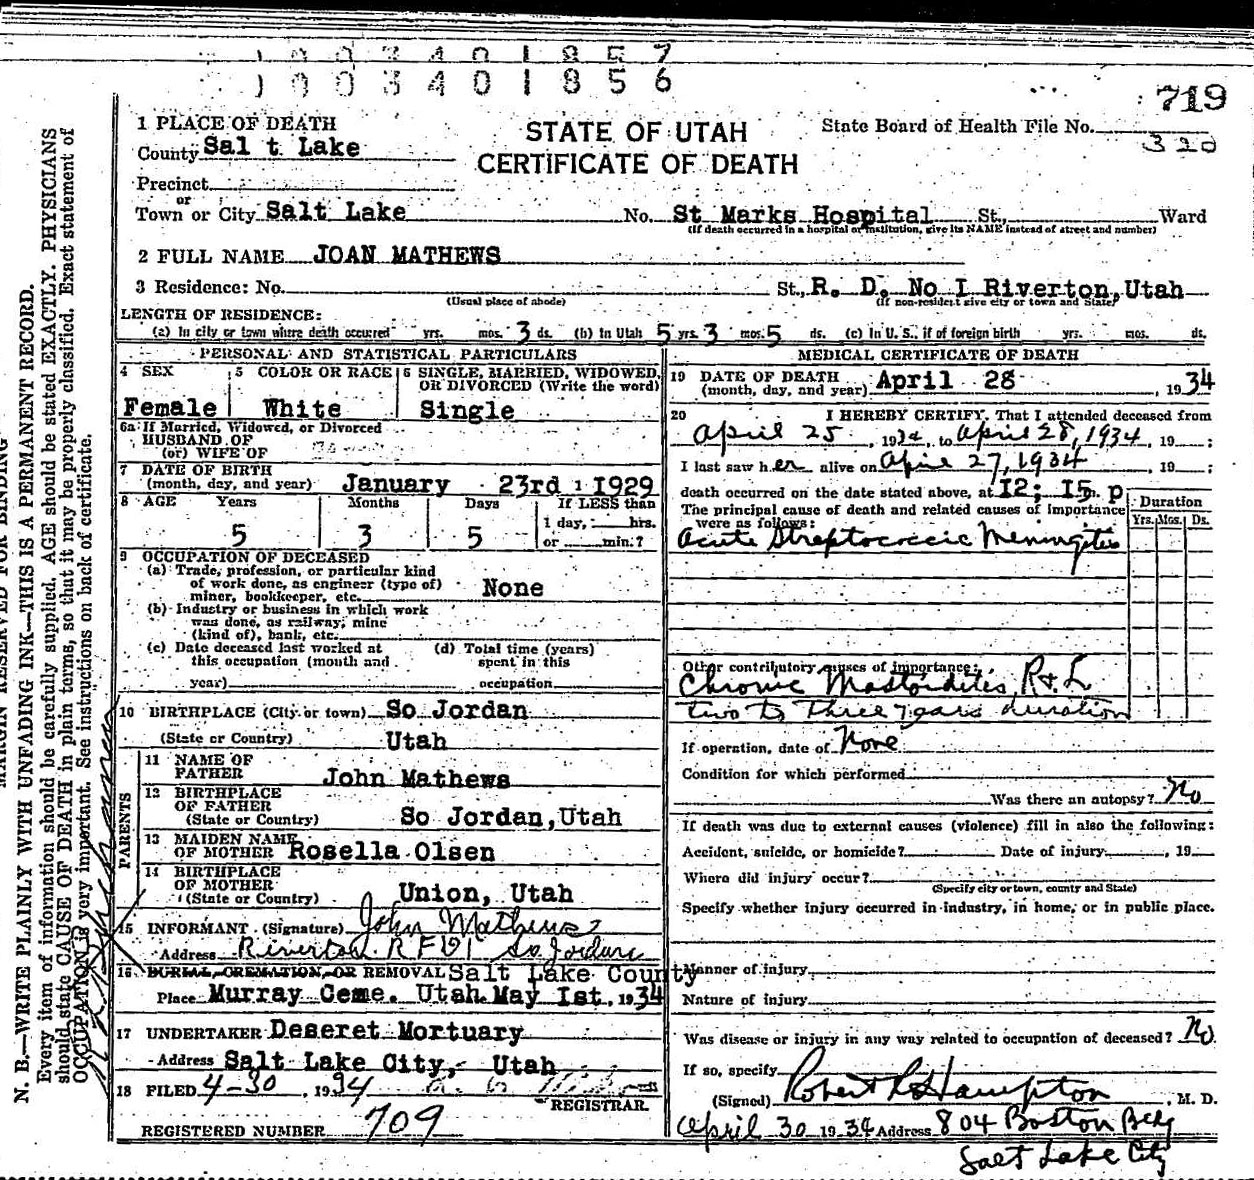 1003401857
1003401856
719
STATE OF UTAH
CERTIFICATE OF DEATH
State Board of Health File No.
320
1 PLACE OF DEATH
County Sal t Lake
Precinct
or
Town or City Salt Lake No. St Marks Hospital St., Ward
(If death occurred in a hospital or institution, give its NAME instead of street and number)
2 FULL NAME JOAN MATHEWS
3 Residence: No. St., R. D. No I Riverton, Utah
(Usual place of abode) (If non-resident give city or town and State)
LENGTH OF RESIDENCE:
(a) In city or town where death occurred yrs. mos. 3 ds. (b) In Utah 5 yrs. 3 mos. 5 ds. (c) In U. S., if of foreign birth yrs. mos. ds.
PERSONAL AND STATISTICAL PARTICULARS
4 SEX 5 COLOR OR RACE 6 SINGLE, MARRIED, WIDOWED, OR DIVORCED (Write the word)
Female White Single
6a If Married, Widowed, or Divorced
HUSBAND OF
(or) WIFE OF
7 DATE OF BIRTH
(month, day, and year) January 23rd 1929
8 AGE Years Months Days If LESS than
1 day, hrs.
5 3 5 or min.?
9 OCCUPATION OF DECEASED
(a) Trade, profession, or particular kind
of work done, as engineer (type of)
miner, bookkeeper, etc. None
(b) Industry or business in which work
was done, as railway, mine
(kind of), bank, etc.
(c) Date deceased last worked at
this occupation (month and
year)
(d) Total time (years)
spent in this
occupation
10 BIRTHPLACE (City or town) So Jordan
(State or Country) Utah
PARENTS
11 NAME OF
FATHER John Mathews
12 BIRTHPLACE
OF FATHER
(State or Country) So Jordan, Utah
13 MAIDEN NAME
OF MOTHER Rosella Olsen
14 BIRTHPLACE
OF MOTHER
(State or Country) Union, Utah
15 INFORMANT (Signature) John Mathews
Address Riverton RFD1 So Jordan
16 BURIAL, CREMATION, OR REMOVAL Salt Lake County
Place Murray Ceme. Utah. May Ist, 1934
17 UNDERTAKER Deseret Mortuary
Address Salt Lake City, Utah
18 FILED 4-30, 1934
REGISTRAR
REGISTERED NUMBER 709
MEDICAL CERTIFICATE OF DEATH
19 DATE OF DEATH
(month, day, and year) April 28, 1934
20 I HEREBY CERTIFY, That I attended deceased from
April 25, 1934, to April 28, 1934, 19 ;
I last saw her alive on April 27, 1934, 19 ;
death occurred on the date stated above, at I2; I5 m. p
The principal cause of death and related causes of importance
were as follows:
Duration
Yrs. Mos. Ds.
Acute Streptococcic Meningitis
Other contributory causes of importance:
Chronic Mastoiditis, R & L
two to three years duration
If operation, date of None
Condition for which performed
Was there an autopsy? No
If death was due to external causes (violence) fill in also the following:
Accident, suicide, or homicide? Date of injury , 19
Where did injury occur?
(Specify city or town, county and State)
Specify whether injury occurred in industry, in home, or in public place.
Manner of injury
Nature of injury
Was disease or injury in any way related to occupation of deceased? No
If so, specify
(Signed) Robert R Hampton, M. D.
April 30 1934 Address 804 Boston Bldg
Salt Lake City
MARGIN RESERVED FOR BINDING
N. B.—WRITE PLAINLY WITH UNFADING INK—THIS IS A PERMANENT RECORD.
Every item of information should be carefully supplied. AGE should be stated EXACTLY. PHYSICIANS
should state CAUSE OF DEATH in plain terms, so that it may be properly classified. Exact statement of
OCCUPATION is very important. See instructions on back of certificate.